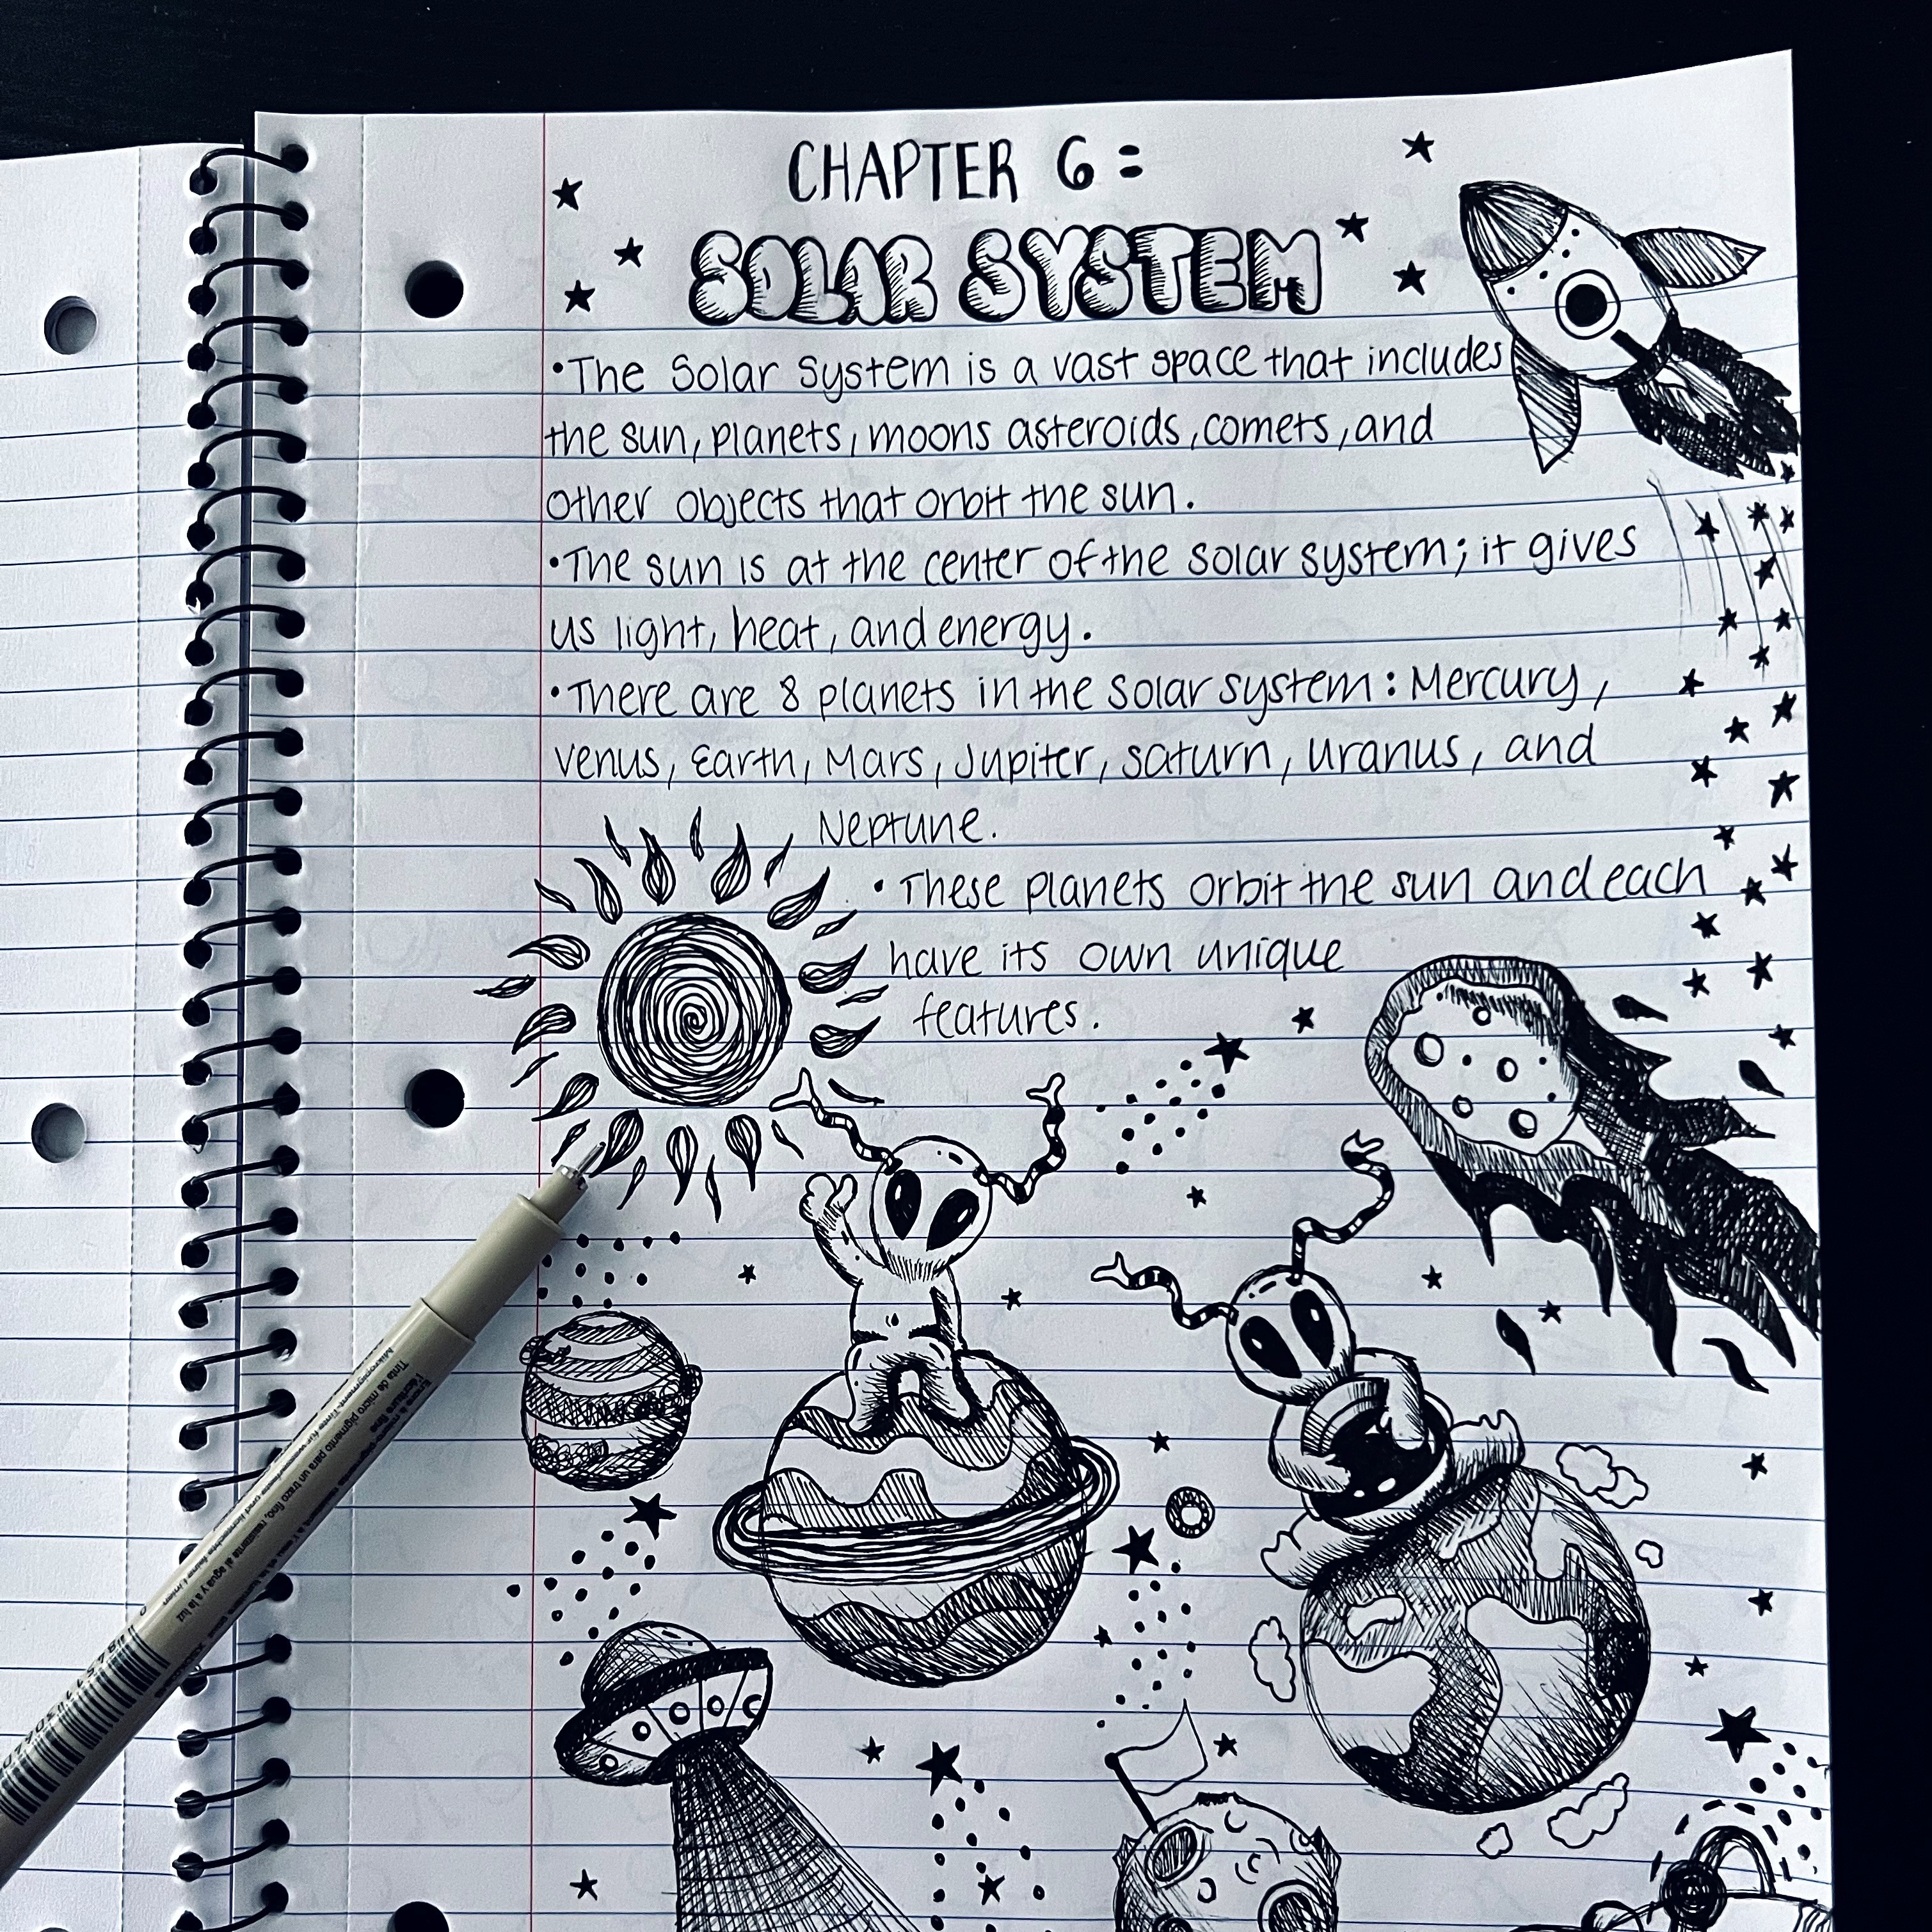 CHAPTER 6:
SOLAR SYSTEM
•The Solar System is a vast space that includes
the sun, planets, moons asteroids, comets, and
other objects that orbit the sun.
•The sun is at the center of the solar system; it gives
us light, heat, and energy.
•There are 8 planets in the solar system: Mercury,
Venus, Earth, Mars, Jupiter, Saturn, Uranus, and
Neptune.
• These planets orbit the sun and each
have its own unique
features.